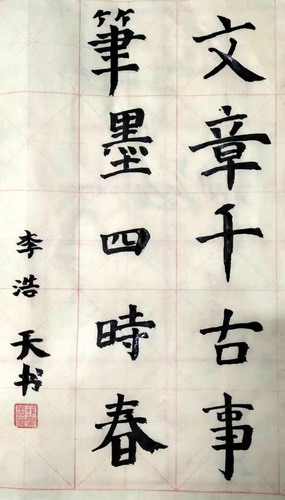 文章千古事
筆墨四時春
李浩天书